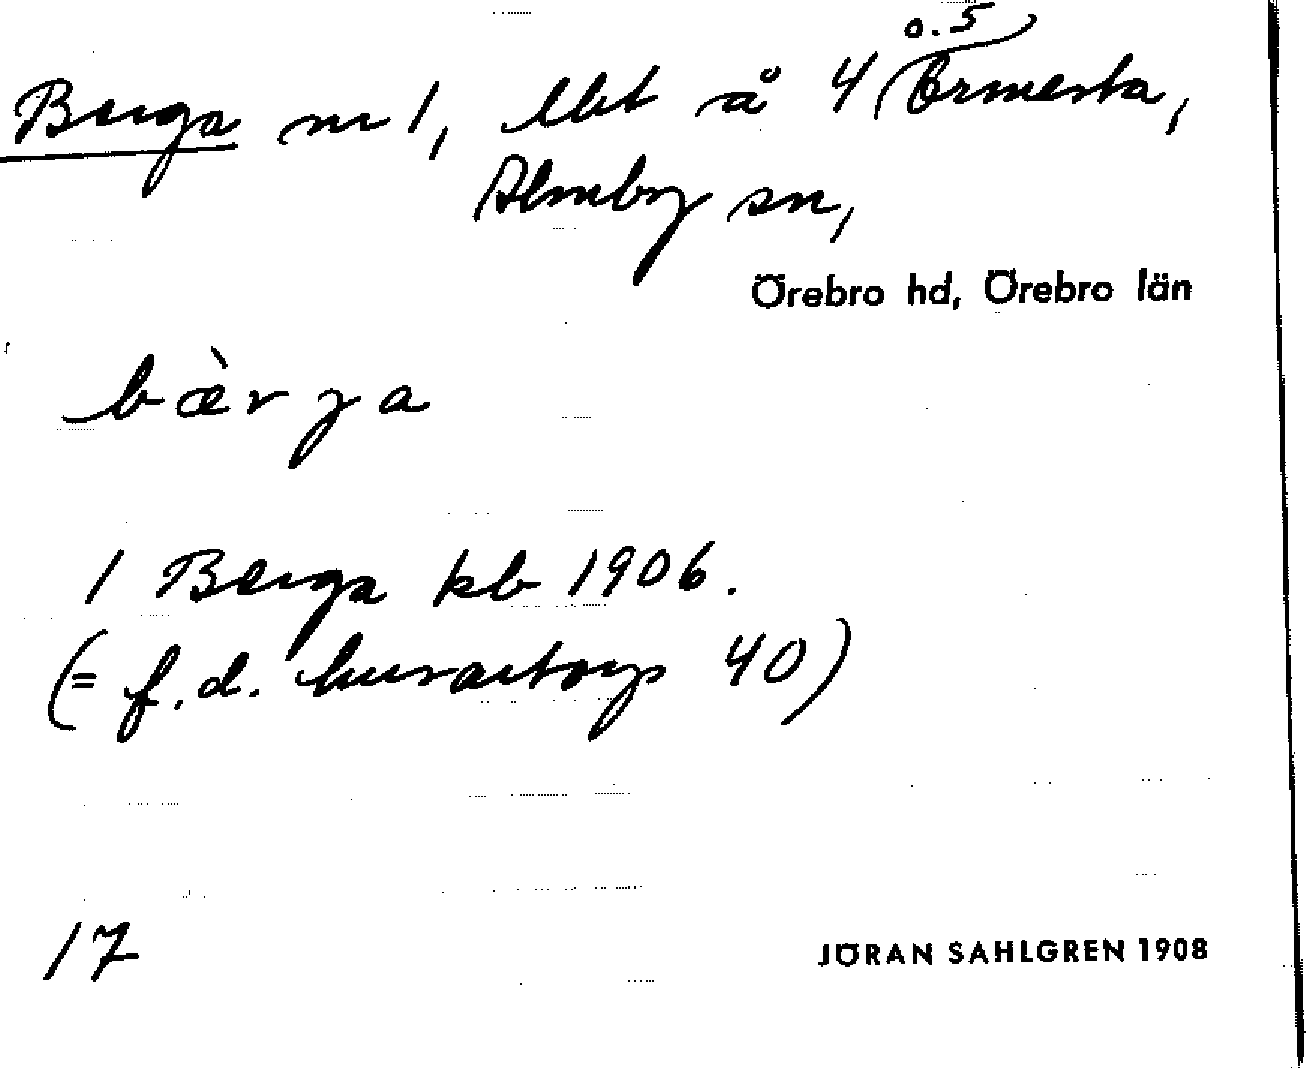 Berga nr 1, lht å 4 o. 5 Ormesta,
Almby sn,
Örebro hd, Örebro län
bæ̀rja
1 Berga kb 1906.
(= f.d. husartorp 40)
17
JÖRAN SAHLGREN 1908